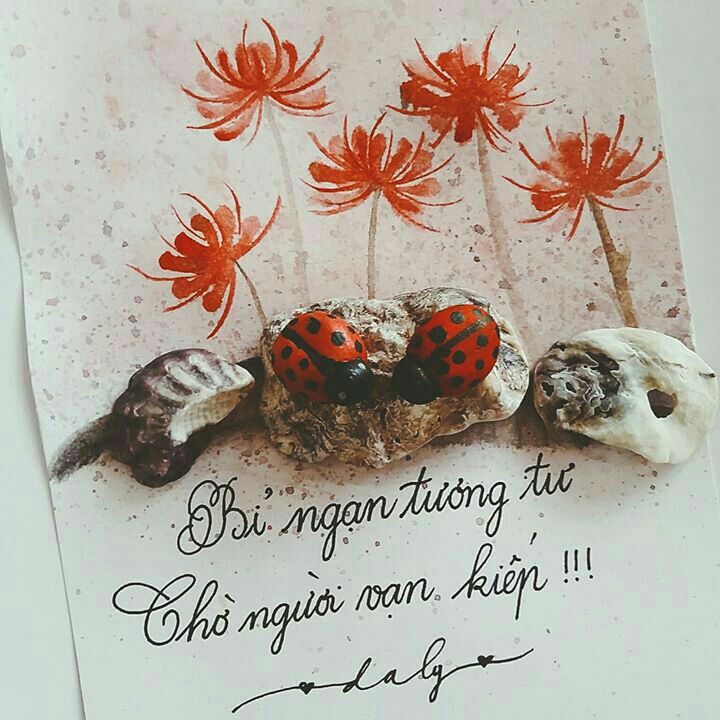 Bỉ ngạn tương tư
Chờ người vạn kiếp !!!
daly